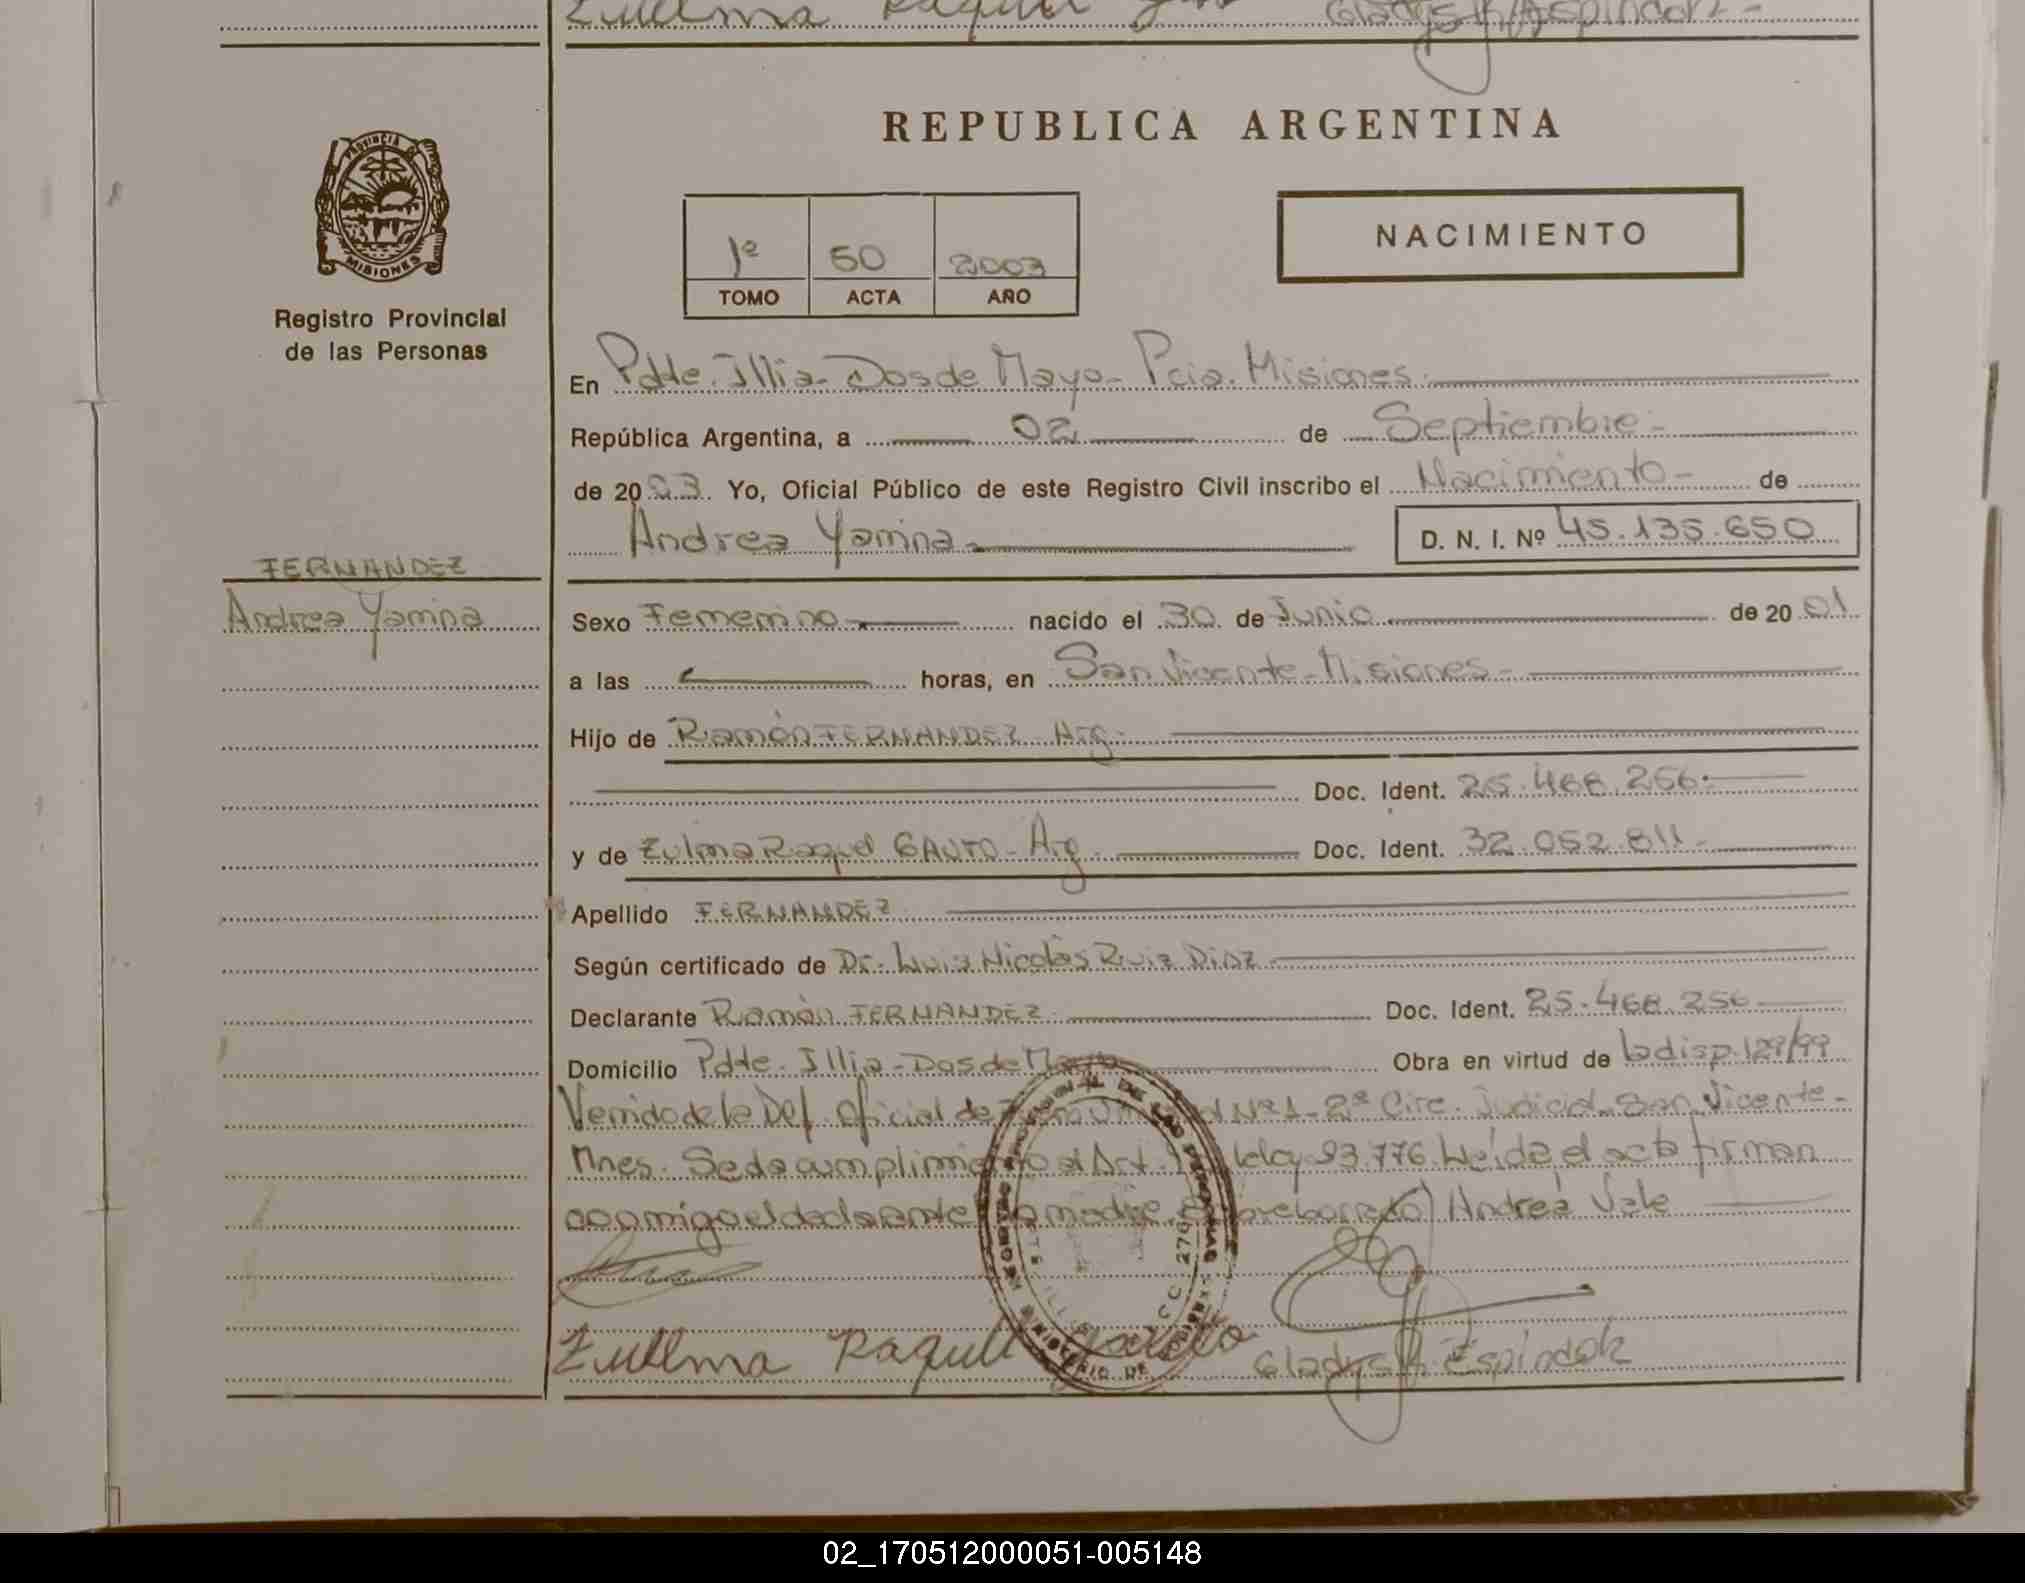 Zulma Raquel
Gladys H. Espindola -
PROVINCIA DE
MISIONES
Registro Provincial
de las Personas
REPUBLICA ARGENTINA
1º 50 2003
TOMO ACTA AÑO
NACIMIENTO
En Pdte. Illia - Dos de Mayo - Pcia. Misiones.
República Argentina, a 02 de Septiembre -
de 2003. Yo, Oficial Público de este Registro Civil inscribo el Nacimiento - de
Andrea Yamina - D. N. I. Nº 45.135.650
FERNANDEZ
Andrea Yamina
Sexo Femenino nacido el 30 de Junio de 2001
a las horas, en San Vicente - Misiones -
Hijo de Ramón FERNANDEZ - Arg.
Doc. Ident. 25.468.256.
y de Zulma Raquel GAUTO - Arg. Doc. Ident. 32.052.811 -
Apellido FERNANDEZ
Según certificado de Dr. Luis Nicolás Ruiz Diaz
Declarante Ramón FERNANDEZ. Doc. Ident. 25.468.256
Domicilio Pdte. Illia - Dos de Mayo Obra en virtud de la disp. 129/99
Venido de la Def. Oficial de Nº 1 - 2ª Circ. Judicial San Vicente -
Mnes. Se da cumplimiento al Art. Ley 23.776. Leída el acta firman
conmigo el declarante la madre. Sobreborrado) Andrea Vale
Zulma Raquel Gauto
Gladys H. Espindola
02_170512000051-005148